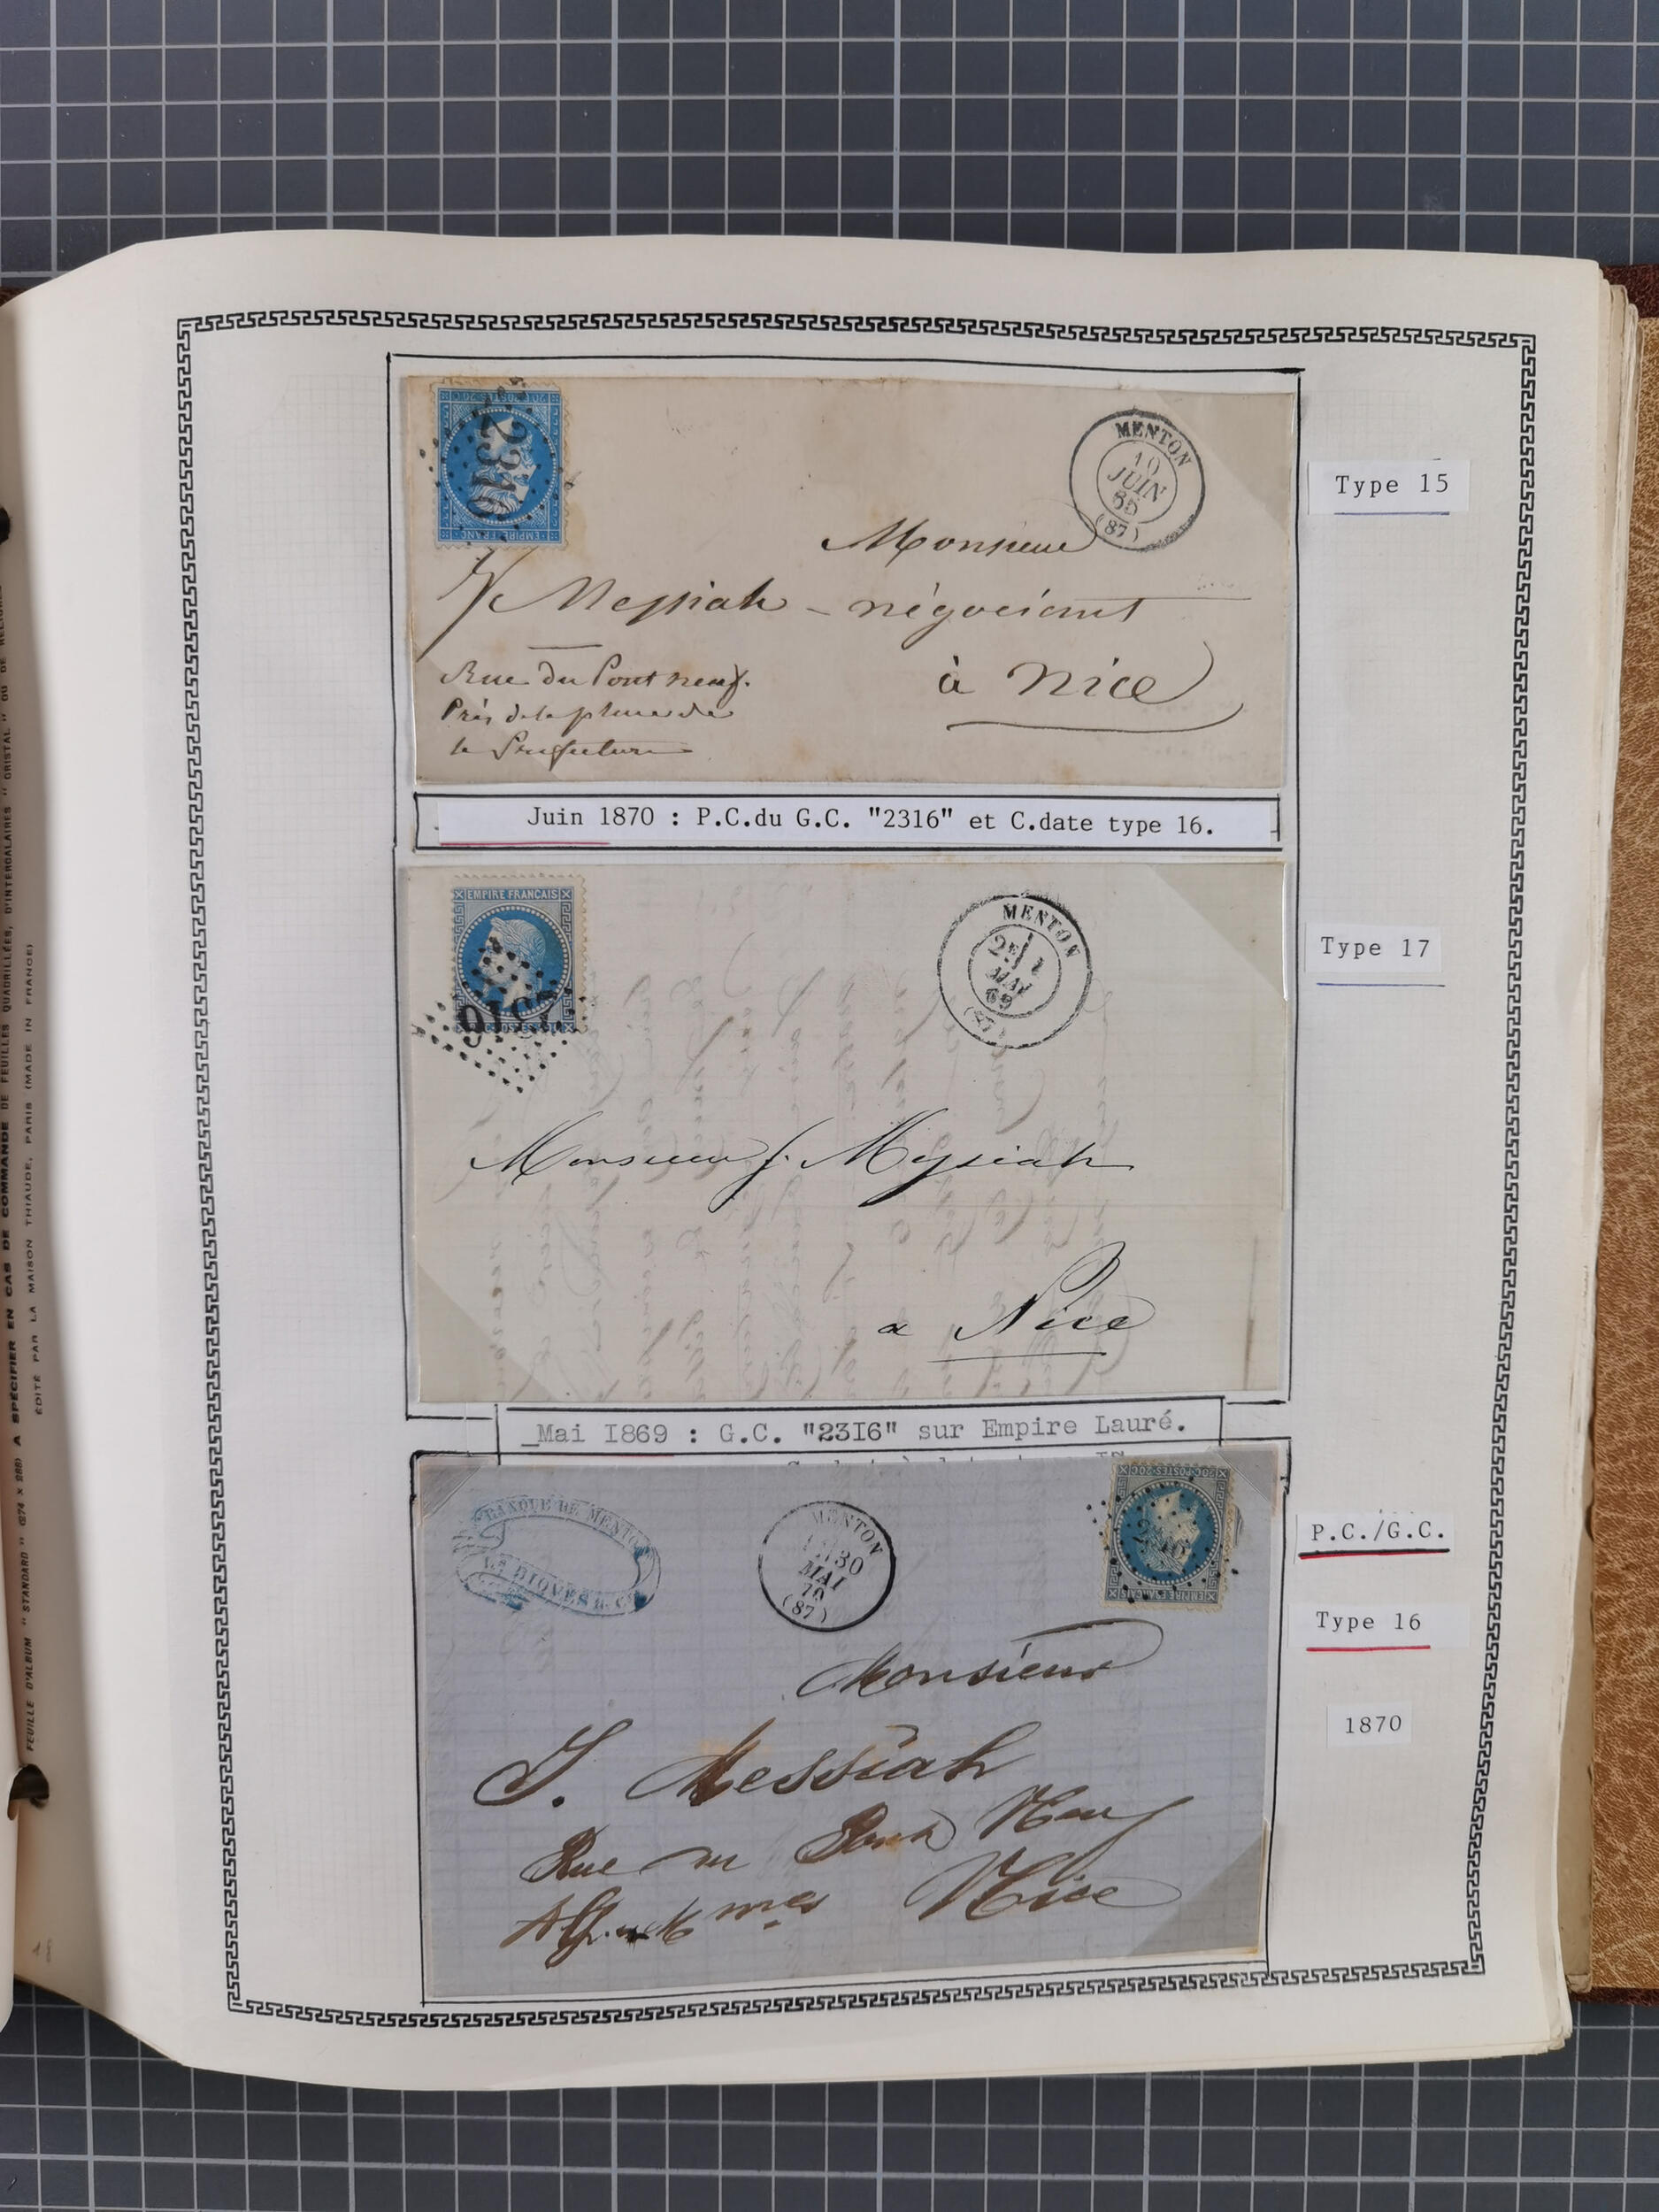 MENTON
10
JUIN
65
(87)
2316
Monsieur
Messiah - négociant
à Nice
Rue du Pont neuf.
Près de la place de
la Préfecture
Type 15
Juin 1870 : P.C.du G.C. "2316" et C.date type 16.
EMPIRE FRANCAIS
2316
MENTON
2E
MAI
69
(87)
Type 17
Monsieur J. Messiah
a Nice
_Mai I869 : G.C. "23I6" sur Empire Lauré.
BANQUE DE MENTON
BIOVES & C
MENTON
30
MAI
70
(87)
20C POSTES 20C
2316
EMPIRE FRANCAIS
P.C./G.C.
Type 16
1870
Monsieur
J. Messiah
Rue du Pont Neuf
Alp. Mmes Nice
FEUILLE D'ALBUM "STANDARD" (274 x 288) A SPÉCIFIER EN CAS DE COMMANDE DE FEUILLES QUADRILLÉES, D'INTERCALAIRES "CRISTAL" OU DE
ÉDITÉ PAR LA MAISON THIAUDE, PARIS (MADE IN FRANCE)